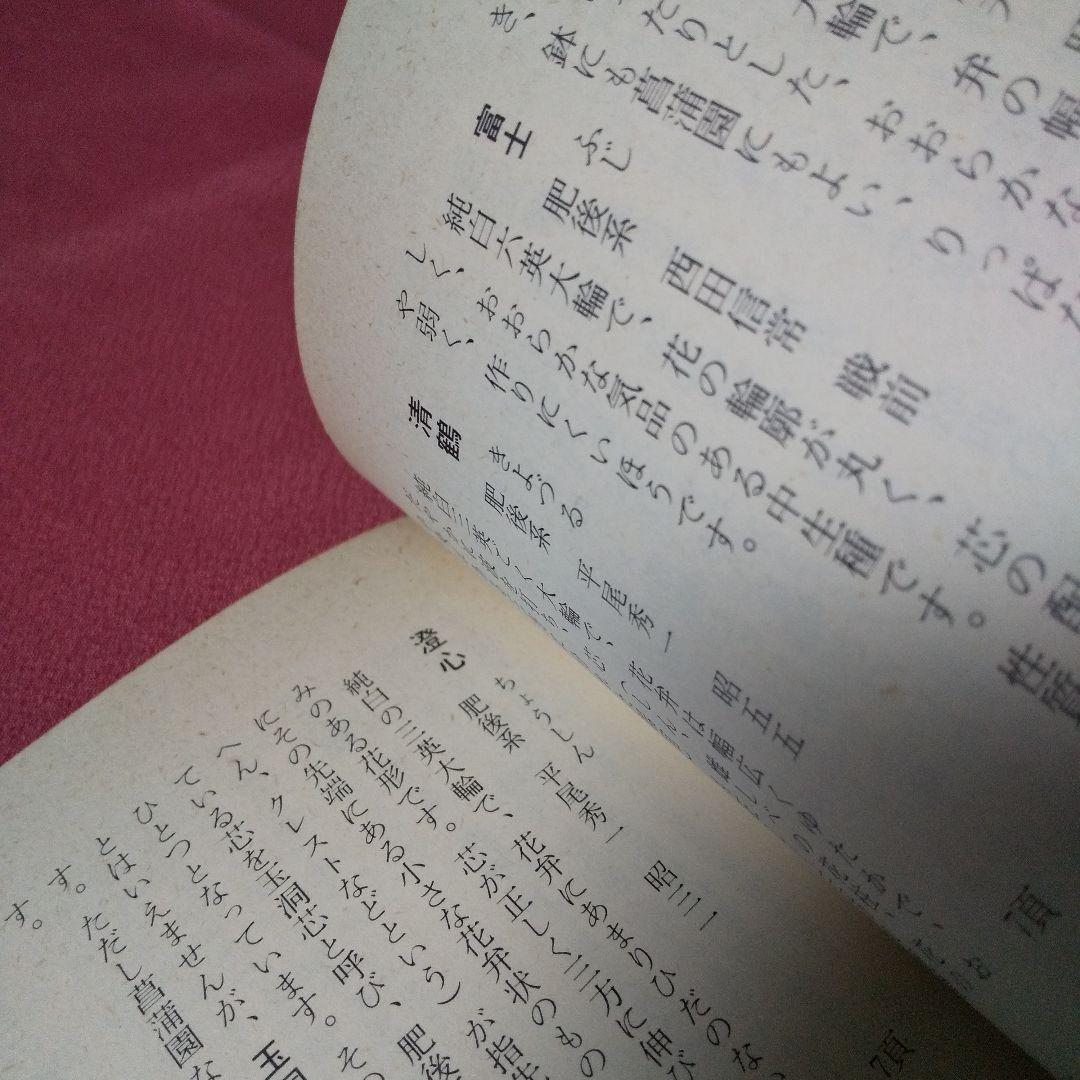 輪で、弁の幅
たりとした、おおらかな
き、鉢にも菖蒲園にもよい、りっぱな
富士 ふじ 肥後系 西田信常 戦前
純白六英大輪で、花の輪廓が丸く、芯の
しく、おおらかな気品のある中生種です。性質
や弱く、作りにくいほうです。
清鶴 きよづる 肥後系 平尾秀一 昭五五
純白三英ごく大輪で、花弁は幅広くゆたかで、
頂
澄心 ちょうしん 肥後系 平尾秀一 昭三二
純白の三英大輪で、花弁にあまりひだのな
みのある花形です。芯が正しく三方に伸び
にその先端にある小さな花弁状のもの
へん、クレストなどという)が
ている芯を玉洞芯と呼び、肥後
ひとつとなっています。そ
とはいえませんが、
す。ただし菖蒲園な
す。
頂